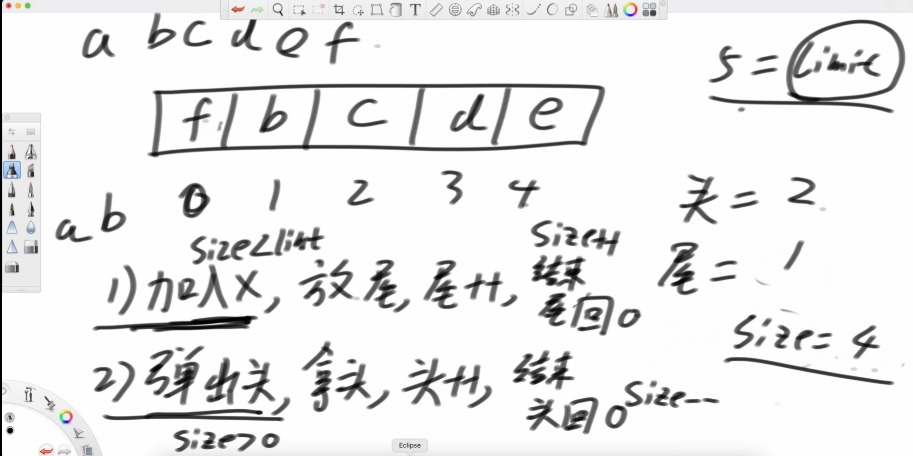 a b c d e f
5 = limit
f b c d e
0 1 2 3 4
头 = 2
a b
size<limt
size++
1) 加入X, 放尾, 尾++, 结束
尾回0
尾 = 1
size = 4
2) 弹出头, 拿头, 头++, 结束
头回0 size--
size>0
Eclipse